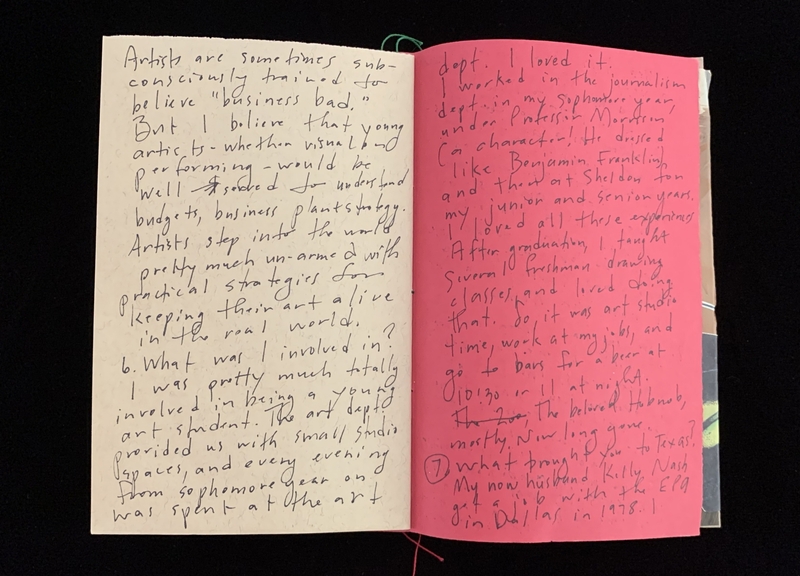 Artists are sometimes sub-
consciously trained to
believe "business bad."
But I believe that young
artists - whether visual or
performing - would be
well served to understand
budgets, business plan & strategy.
Artists step into the world
pretty much un-armed with
practical strategies for
keeping their art alive
in the real world.
6. What was I involved in?
I was pretty much totally
involved in being a young
art student. The art dept.
provided us with small studio
spaces, and every evening
from sophomore year on
was spent at the art
dept. I loved it.
I worked in the journalism
dept. in my sophomore year,
under Professor Morrison
(a character! He dressed
like Benjamin Franklin)
and then at Sheldon for
my junior and senior years.
I loved all these experiences
After graduation, I taught
several freshman drawing
classes, and loved doing
that. So, it was art studio
time, work at my jobs, and
go to bars for a beer at
10:30 or 11 at night.
The Zoo, The beloved Hobnob,
mostly. Now long gone.
7 What brought you to Texas?
My now husband Killy Nash
got a job with the EPA
in Dallas in 1978. I